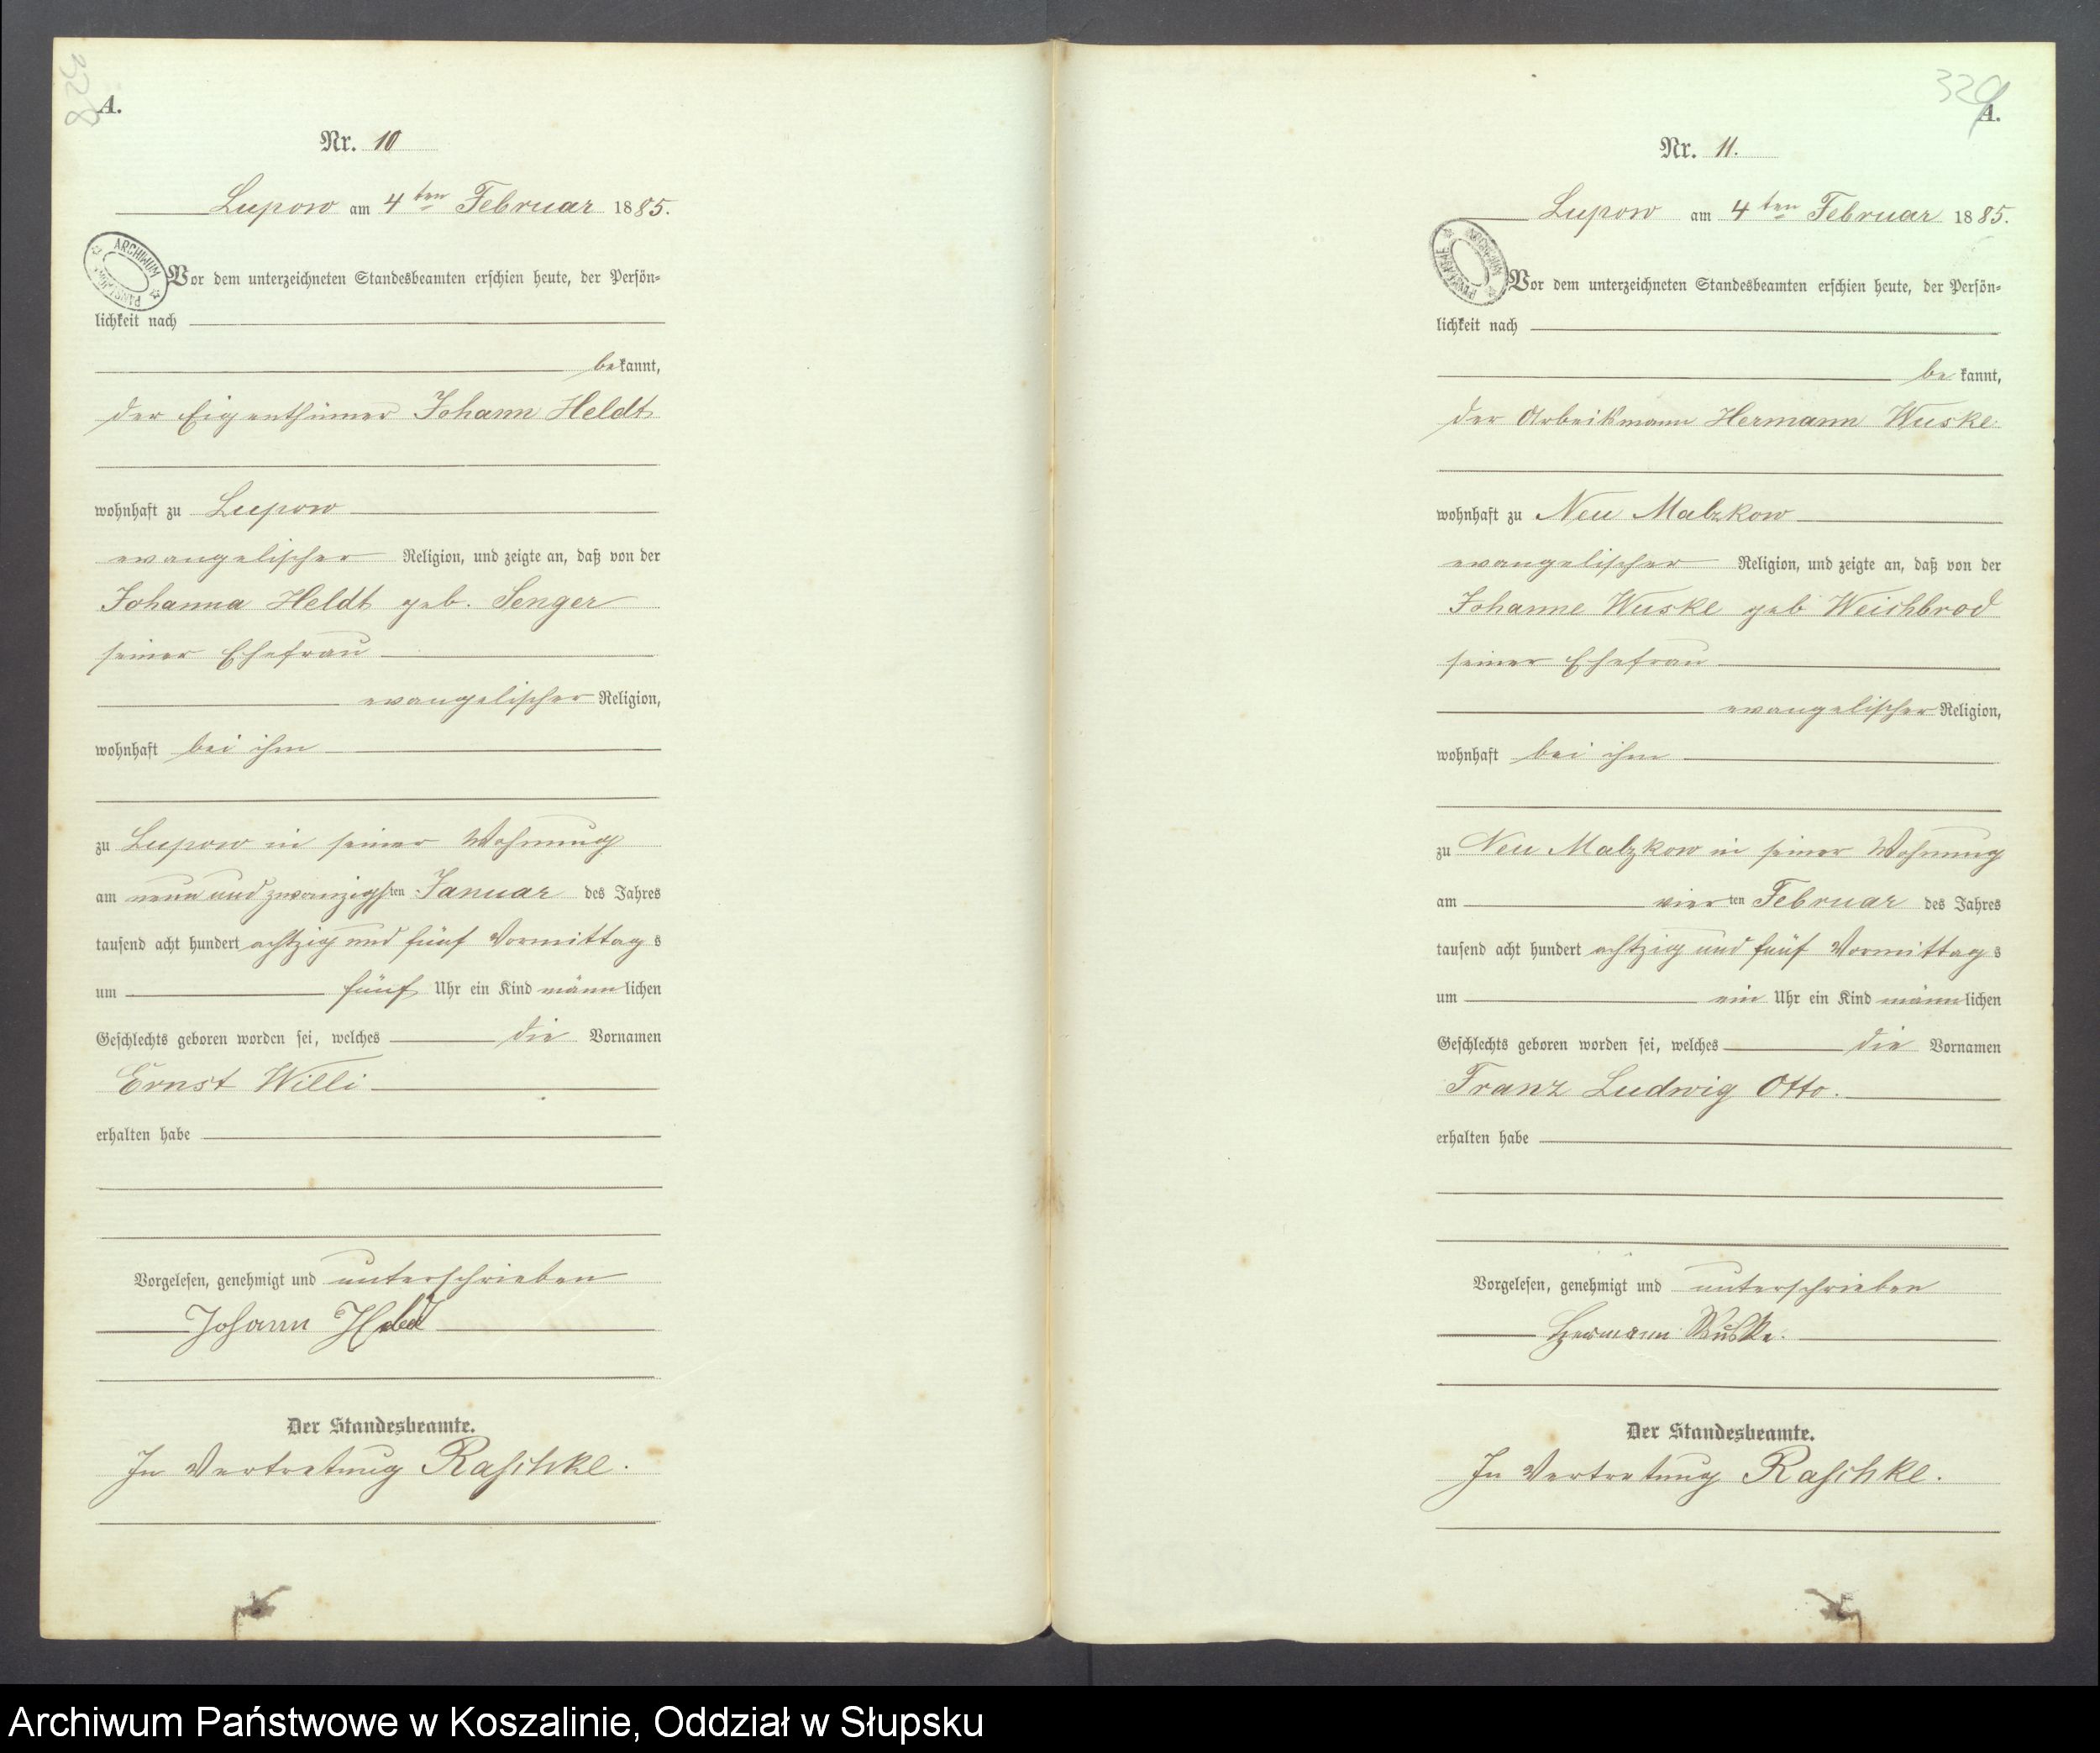 328
A.
Nr. 10
Lupow am 4ten Februar 1885.
ARCHIWUM PAŃSTWOWE
Vor dem unterzeichneten Standesbeamten erschien heute, der Persön-
lichkeit nach
bekannt,
der Eigenthümer Johann Heldt
wohnhaft zu Lupow
evangelischer Religion, und zeigte an, daß von der
Johanna Heldt geb. Senger
seiner Ehefrau
evangelischer Religion,
wohnhaft bei ihm
zu Lupow in seiner Wohnung
am neun und zwanzigsten Januar des Jahres
tausend acht hundert achtzig und fünf Vormittags
um fünf Uhr ein Kind männlichen
Geschlechts geboren worden sei, welches die Vornamen
Ernst Willi
erhalten habe
Vorgelesen, genehmigt und unterschrieben
Johann Held
Der Standesbeamte.
In Vertretung Raschke.
329
A.
Nr. 11.
Lupow am 4ten Februar 1885.
ARCHIWUM PAŃSTWOWE
Vor dem unterzeichneten Standesbeamten erschien heute, der Persön-
lichkeit nach
bekannt,
der Arbeitsmann Hermann Wuske
wohnhaft zu Neu Malzkow
evangelischer Religion, und zeigte an, daß von der
Johanne Wuske geb Weichbrod
seiner Ehefrau
evangelischer Religion,
wohnhaft bei ihm
zu Neu Malzkow in seiner Wohnung
am vierten Februar des Jahres
tausend acht hundert achtzig und fünf Vormittags
um ein Uhr ein Kind männlichen
Geschlechts geboren worden sei, welches die Vornamen
Franz Ludwig Otto.
erhalten habe
Vorgelesen, genehmigt und unterschrieben
Hermann Wuske.
Der Standesbeamte.
In Vertretung Raschke.
Archiwum Państwowe w Koszalinie, Oddział w Słupsku